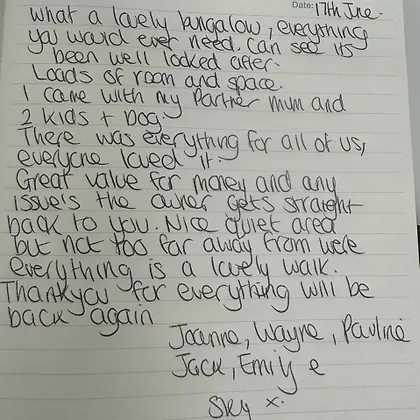 Date: 17th June.
What a lovely bungalow, everything
you would ever need. Can see its
been well looked after.
Loads of room and space.
I came with my partner mum and
2 kids + Dog.
There was everything for all of us,
everyone loved it.
Great value for money and any
issue's the owner gets straight
back to you. Nice quiet area
but not too far away from were
everything is a lovely walk.
Thankyou for everything will be
back again
Joanne, Wayne, Pauline
Jack, Emily e
Sky x.